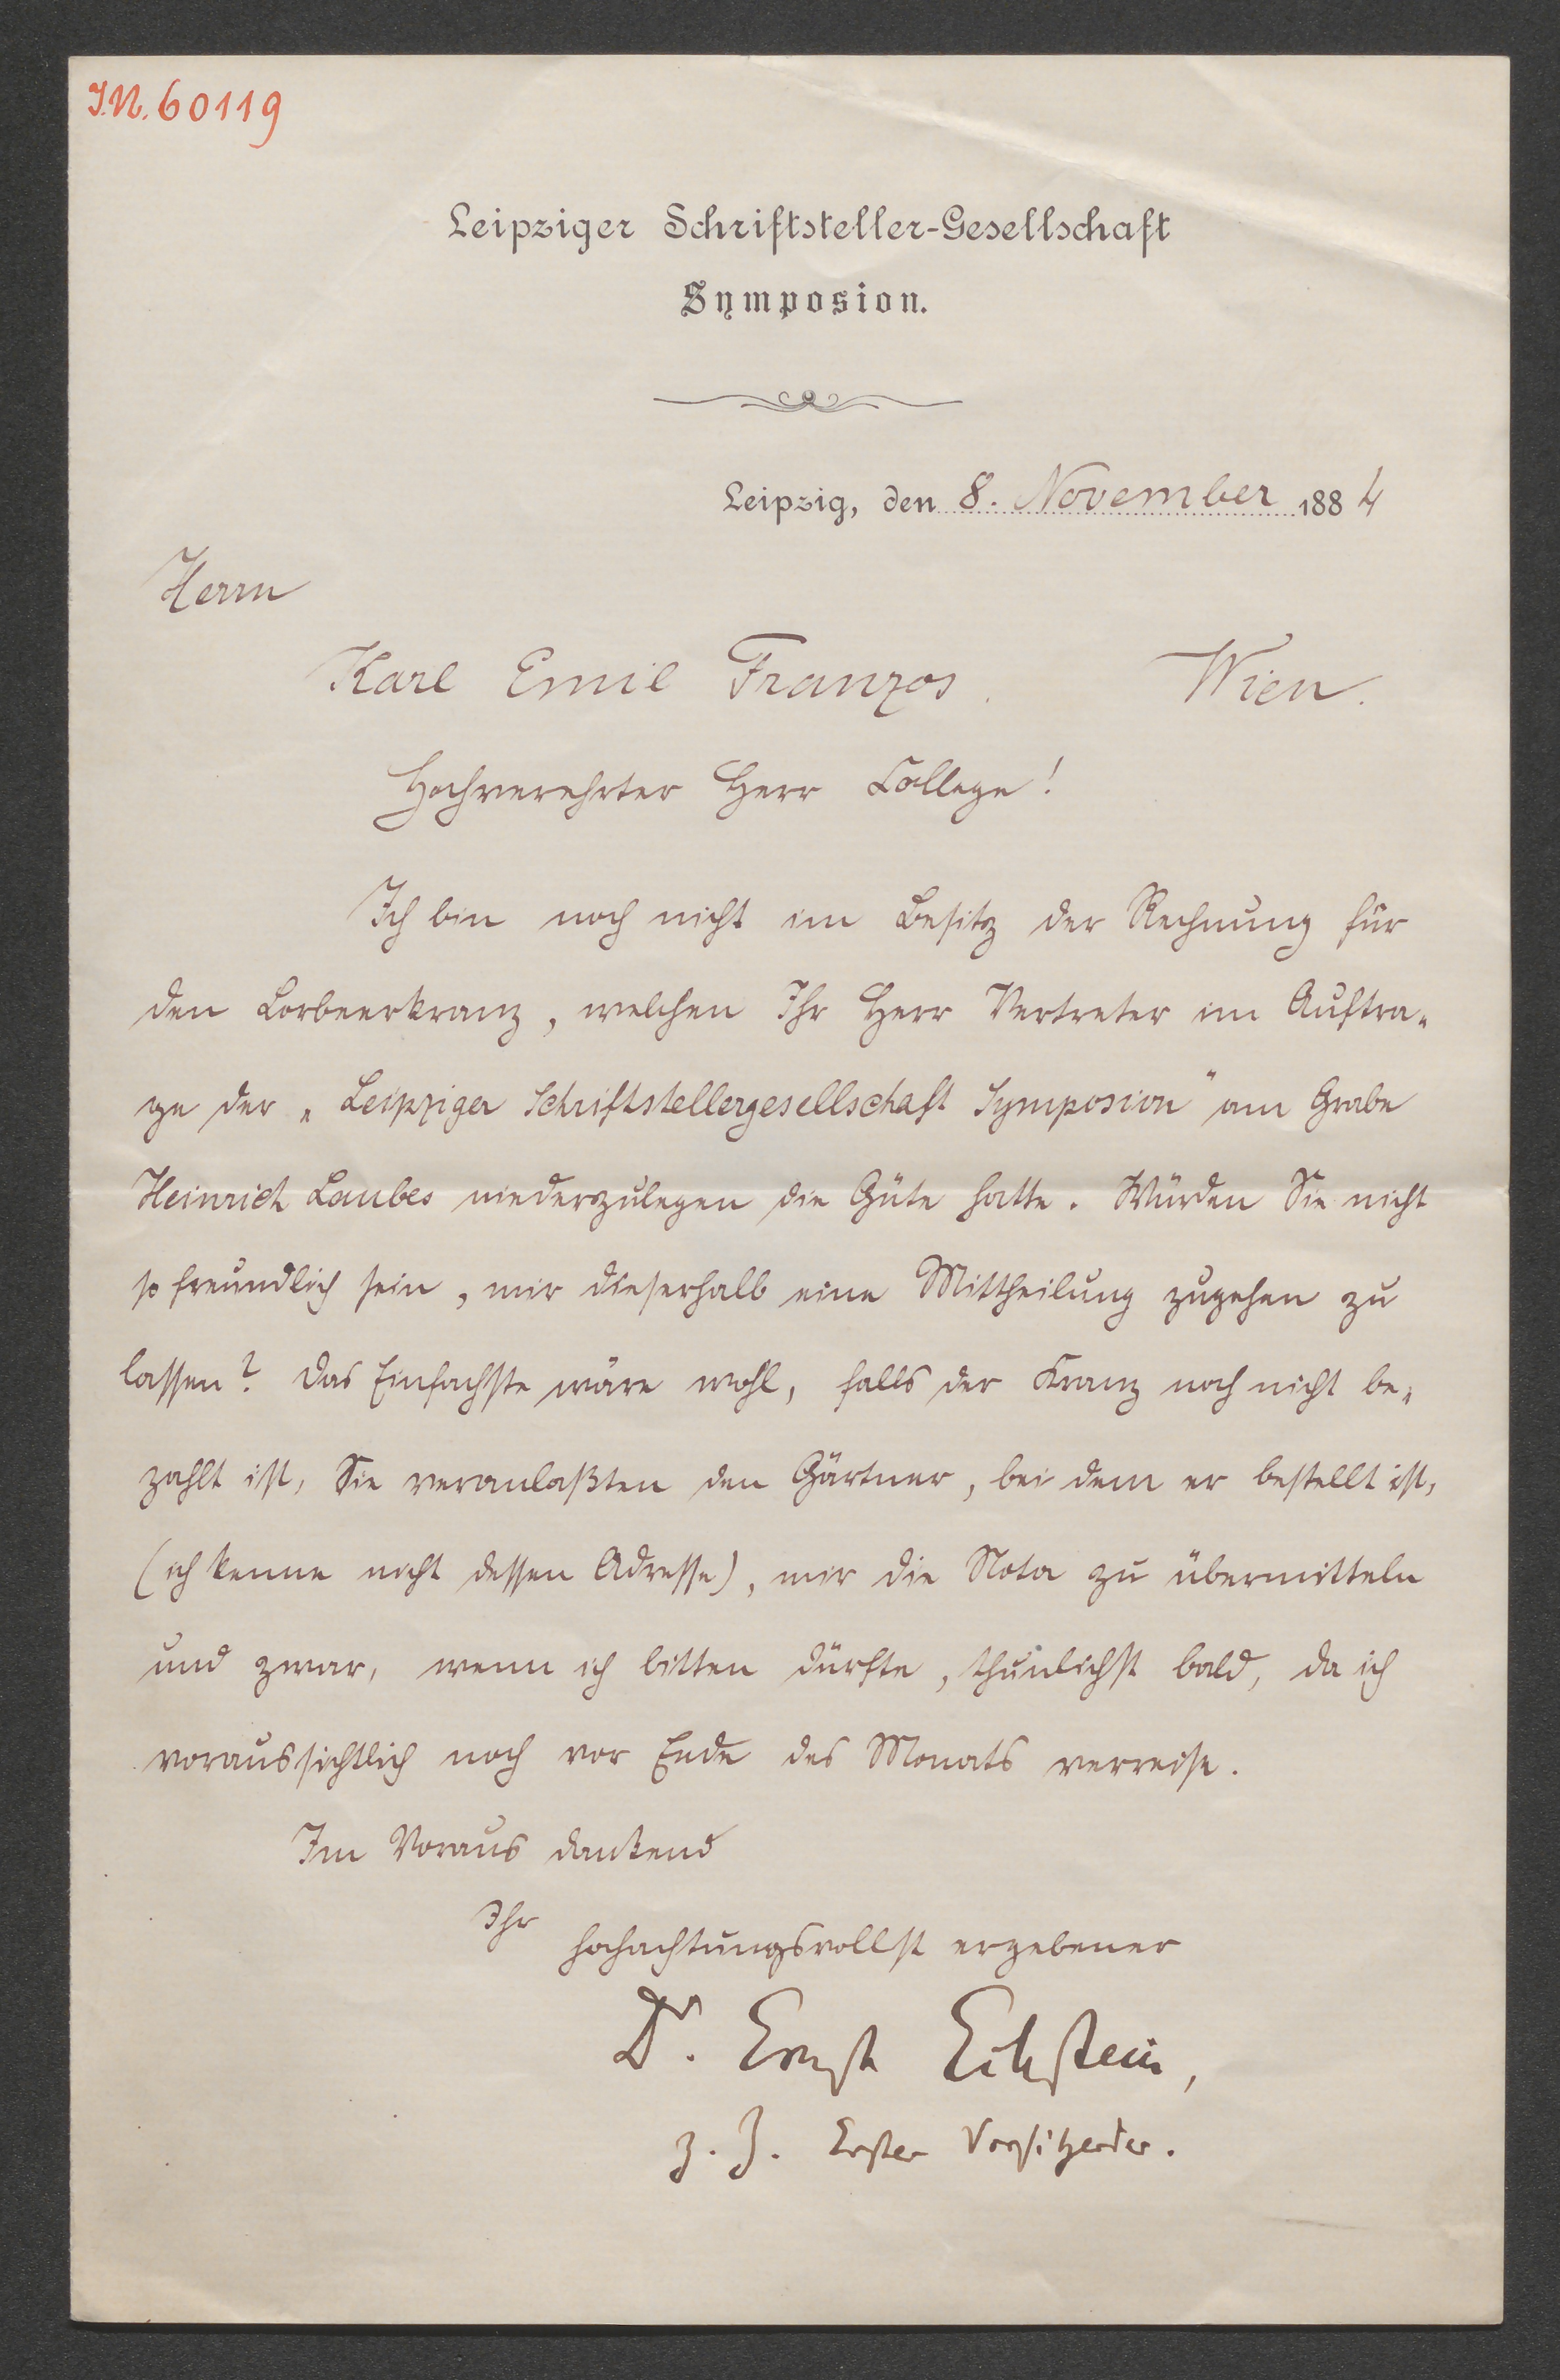 I.N. 60119
Leipziger Schriftsteller-Gesellschaft
Symposion.
Leipzig, den 8. November 1884
Herrn
Karl Emil Franzos. Wien.
Hochverehrter Herr College!
Ich bin noch nicht im Besitz der Rechnung für
den Lorbeerkranz, welchen Ihr Herr Vertreter im Auftra-
ge der „Leipziger Schriftstellergesellschaft Symposion" am Grabe
Heinrich Laubes niederzulegen die Güte hatte. Würden Sie nicht
so freundlich sein, mir dieserhalb eine Mittheilung zugehen zu
lassen? Das Einfachste wäre wohl, falls der Kranz noch nicht be-
zahlt ist, Sie veranlaßten den Gärtner, bei dem er bestellt ist,
(ich kenne nicht dessen Adresse), mir die Nota zu übermitteln
und zwar, wenn ich bitten dürfte, thunlichst bald, da ich
voraussichtlich noch vor Ende des Monats verreise.
Im Voraus dankend
Ihr
hochachtungsvollst ergebener
Dr. Ernst Eckstein,
z. Z. Erster Vorsitzender.